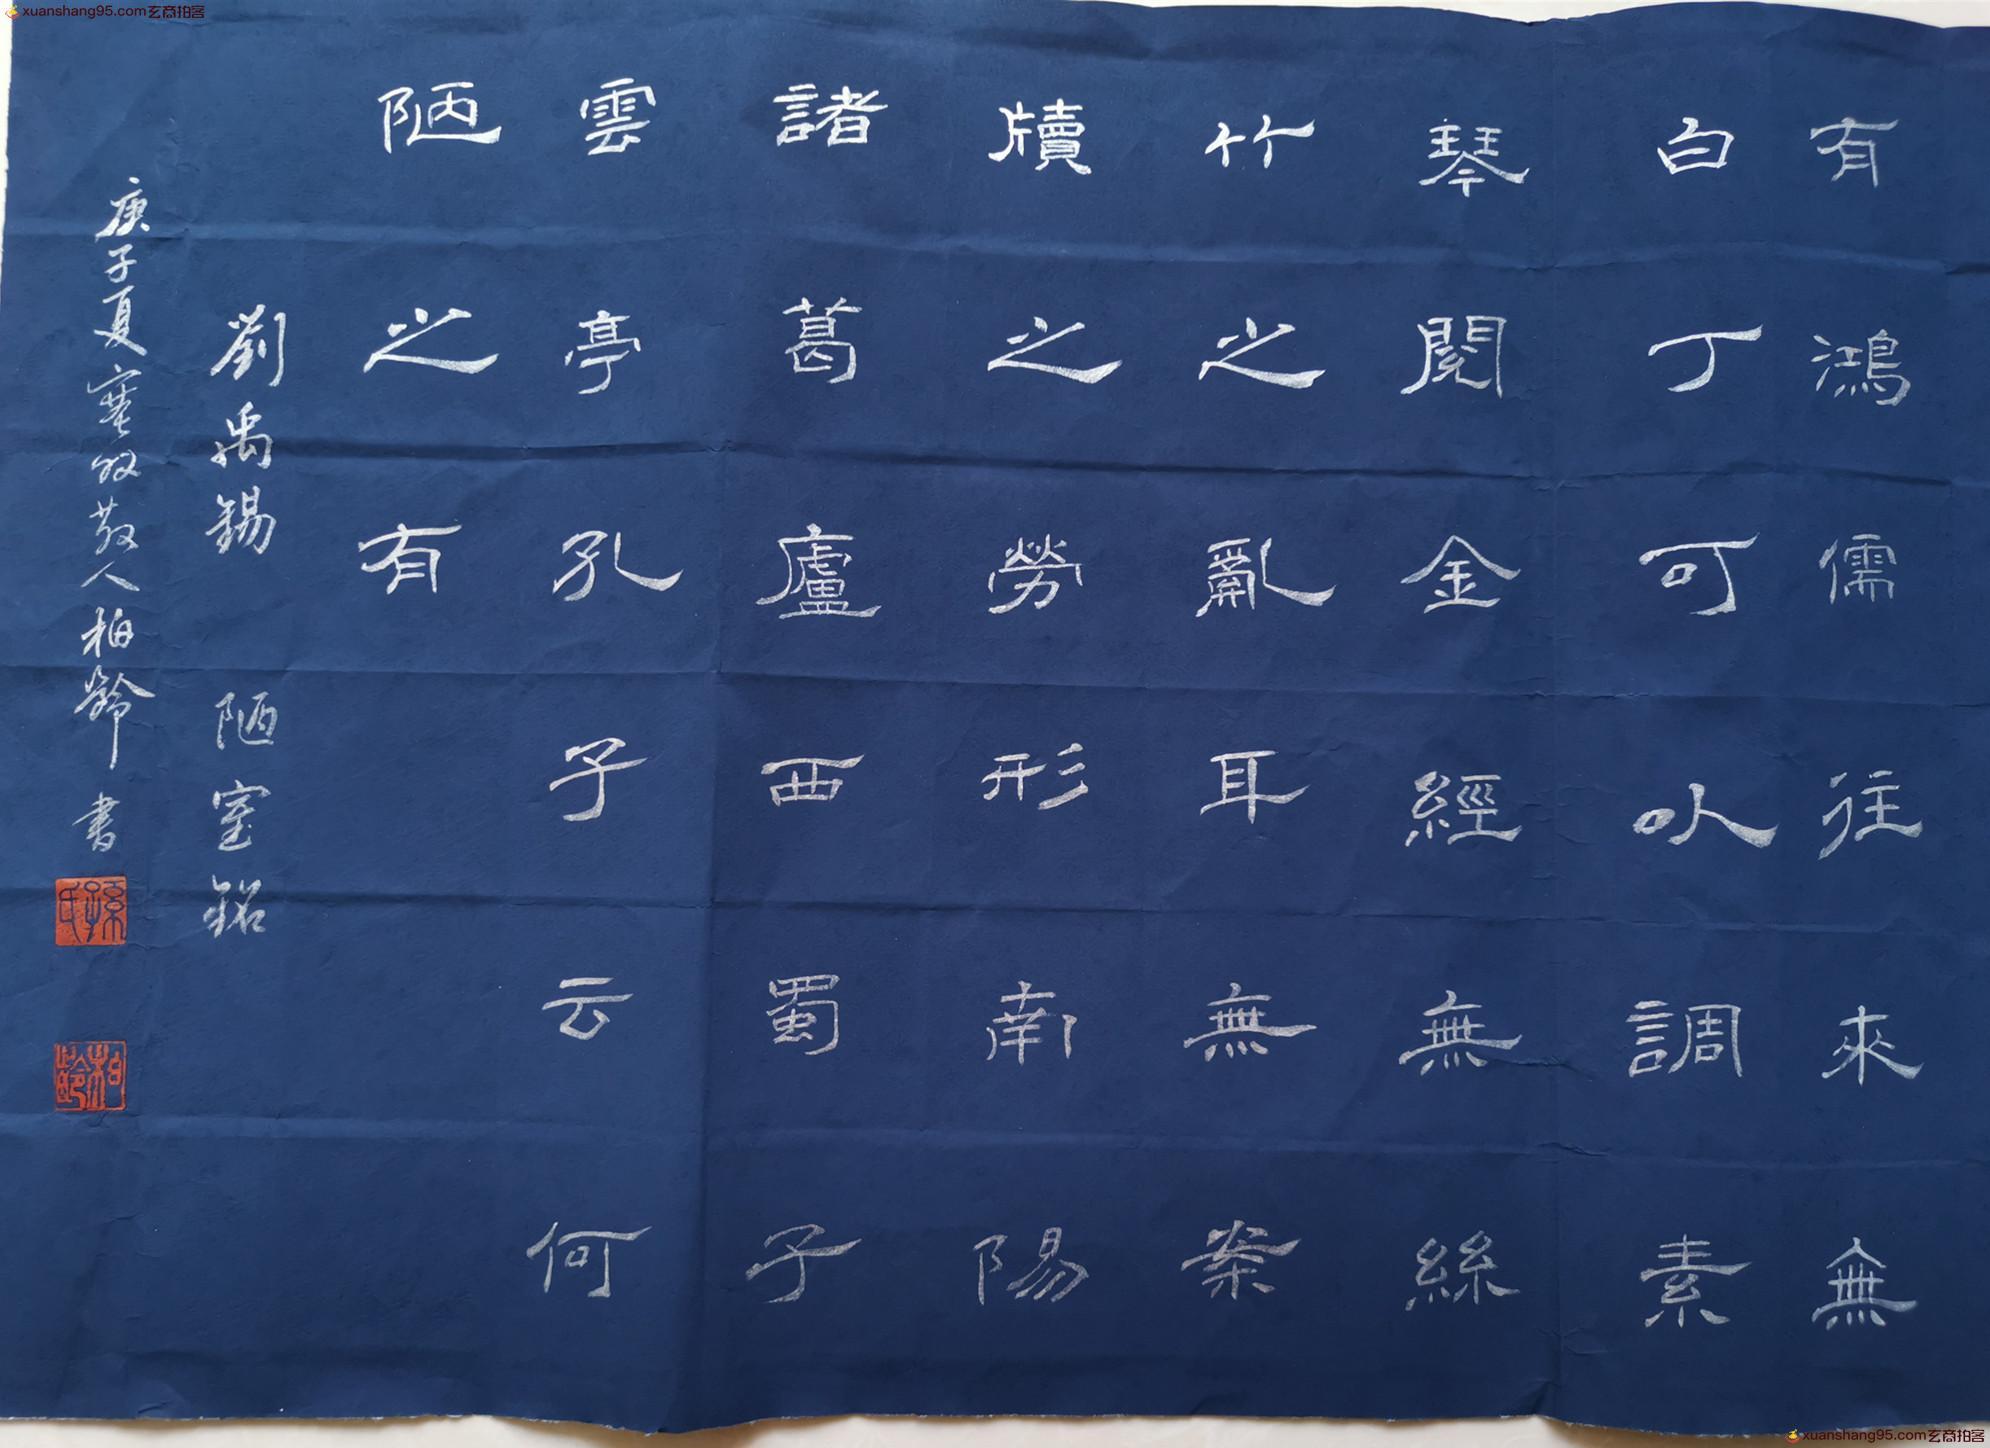 xuanshang95.com玄商拍客
有鴻儒往來無
白丁可以調素
琴閱金經無絲
竹之亂耳無案
牘之勞形南陽
諸葛廬西蜀子
雲亭孔子云何
陋之有
劉禹錫 陋室銘
庚子夏 散人柏齡書
孫氏
柏齡
xuanshang95.com玄商拍客